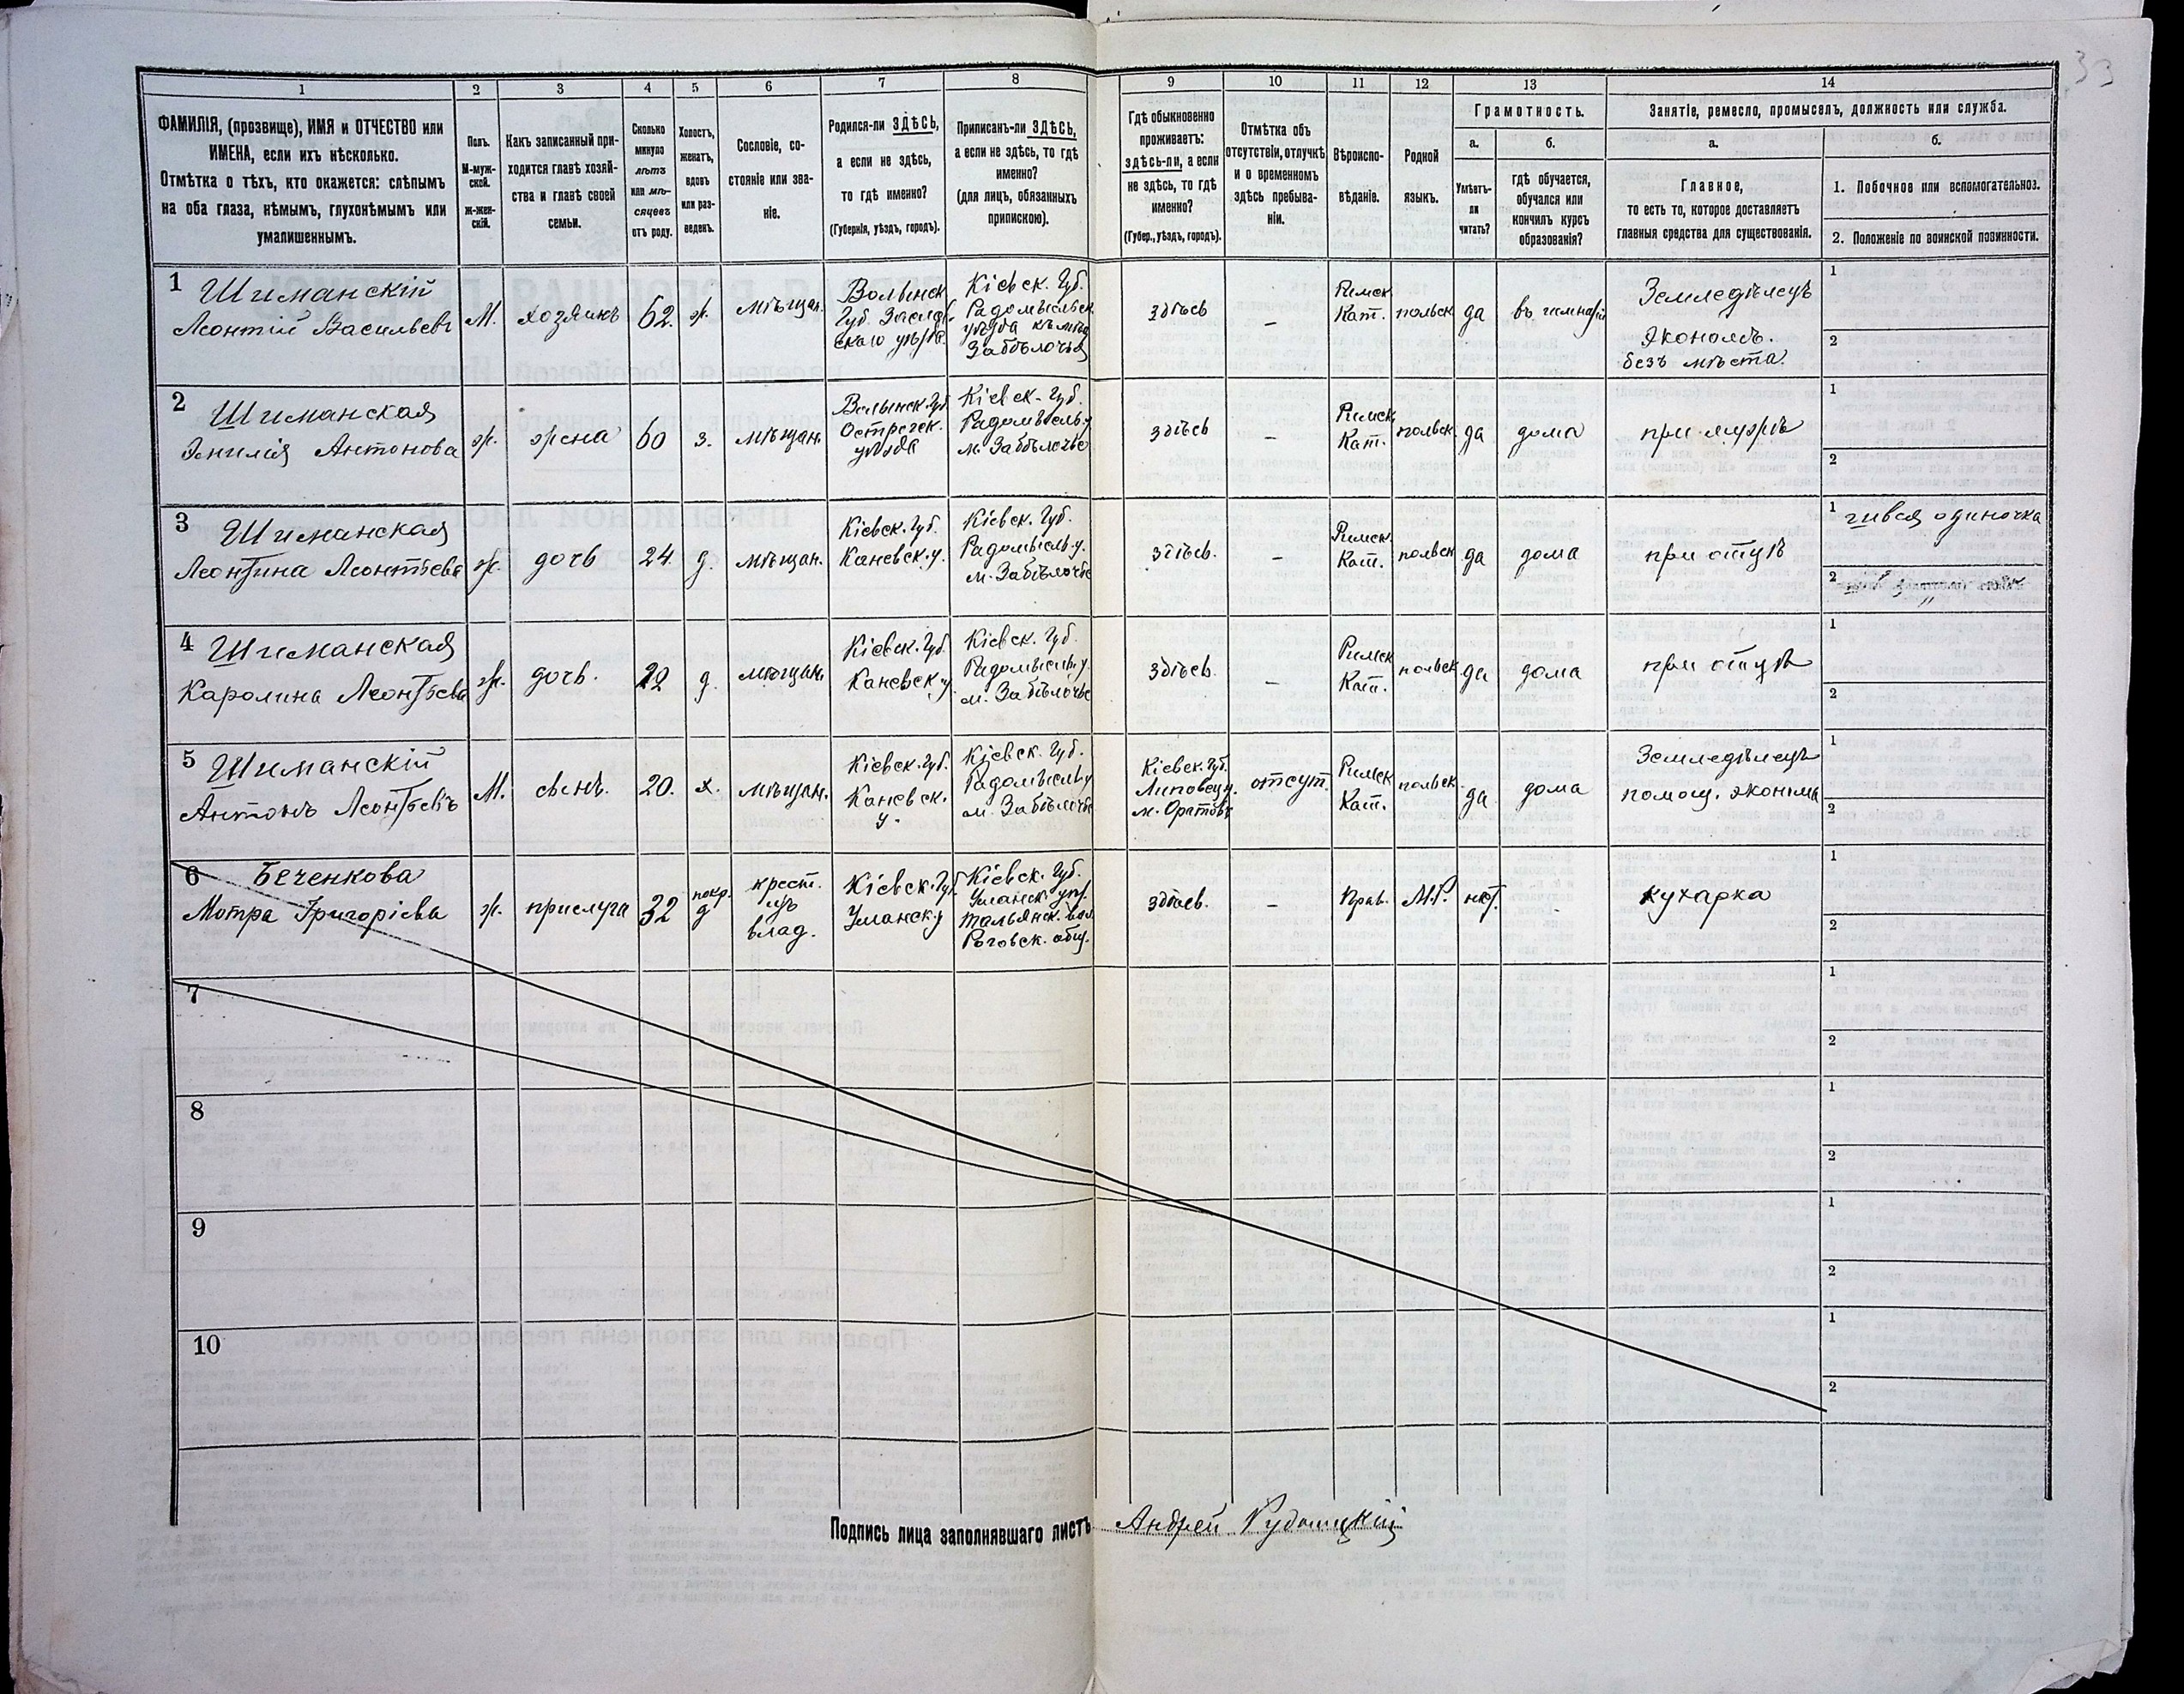 33
1 2 3 4 5 6 7 8 9 10 11 12 13 14
ФАМИЛІЯ, (прозвище), ИМЯ и ОТЧЕСТВО или
ИМЕНА, если ихъ нѣсколько.
Отмѣтка о тѣхъ, кто окажется: слѣпымъ
на оба глаза, нѣмымъ, глухонѣмымъ или
умалишеннымъ.
Полъ.
М-муж-
ской.
ж-жен-
скій.
Какъ записанный при-
ходится главѣ хозяй-
ства и главѣ своей
семьи.
Сколько
минуло
лѣтъ
или мѣ-
сяцевъ
отъ роду.
Холостъ,
женатъ,
вдовъ
или раз-
веденъ.
Сословіе, со-
стояніе или зва-
ніе.
Родился-ли ЗДѢСЬ,
а если не здѣсь,
то гдѣ именно?
(Губернія, уѣздъ, городъ).
Приписанъ-ли ЗДѢСЬ,
а если не здѣсь, то гдѣ
именно?
(для лицъ, обязанныхъ
припискою).
Гдѣ обыкновенно
проживаетъ:
здѣсь-ли, а если
не здѣсь, то гдѣ
именно?
(Губер., уѣздъ, городъ).
Отмѣтка объ
отсутствіи, отлучкѣ
и о временномъ
здѣсь пребыва-
ніи.
Вѣроиспо-
вѣданіе.
Родной
языкъ.
Грамотность.
а.
Умѣетъ-
ли
читать?
б.
гдѣ обучается,
обучался или
кончилъ курсъ
образованія?
Занятіе, ремесло, промыселъ, должность или служба.
а.
Главное,
то есть то, которое доставляетъ
главныя средства для существованія.
б.
1. Побочное или вспомогательноз.
2. Положеніе по воинской повинности.
1
Шиманскій
Леонтій Васильевъ
М.
хозяинъ
62.
ж.
мѣщан.
Волынск.
Губ. Заслав-
скаго уѣзда.
Кіевск. Губ.
Радомысльск.
уѣзда
Забѣлочья
здѣсь
–
Римск.
Кат.
польск.
да
въ гимназіи
Земледѣлецъ
Экономъ.
безъ мѣста.
1
2
2
Шиманская
Эмилія Антонова
ж.
жена
60
з.
мѣщан.
Волынск. Губ.
Острогск.
уѣзда
Кіевск. Губ.
Радомысль. у.
м. Забѣлочье
здѣсь
–
Римск.
Кат.
польск.
да
дома
при мужѣ
1
2
3
Шиманская
Леонтина Леонтьева
ж.
дочь
24.
д.
мѣщан.
Кіевск. Губ.
Каневск. у.
Кіевск. Губ.
Радомысль. у.
м. Забѣлочье
здѣсь.
–
Римск.
Кат.
польск.
да
дома
при отцѣ
1
одиночка
2
4
Шиманская
Каролина Леонтьева
ж.
дочь.
22
д.
мѣщан.
Кіевск. Губ.
Каневск. у.
Кіевск. Губ.
Радомысль. у.
м. Забѣлочье
здѣсь.
–
Римск.
Кат.
польск.
да
дома
при отцѣ
1
2
5
Шиманскій
Антонъ Леонтьевъ
М.
сынъ.
20.
х.
мѣщан.
Кіевск. Губ.
Каневск.
у.
Кіевск. Губ.
Радомысль. у.
м. Забѣлочье
Кіевск. Губ.
Липовец. у.
м. Оратовъ
отсут.
Римск.
Кат.
польск.
да
дома
Земледѣлецъ
помощ. эконома
1
2
6
Беченкова
Мотра Григорієва
ж.
прислуга
32
покр.
д
крест.
изъ
влад.
Кіевск. Губ.
Уманск. у
Кіевск. Губ.
Уманск. уѣз.
Тальянск. вол.
Роговск. общ.
здѣсь.
–
Прав.
М.Р.
нѣт.
-
кухарка
1
2
7
1
2
8
1
2
9
1
2
10
1
2
Подпись лица заполнявшаго листъ Андрей